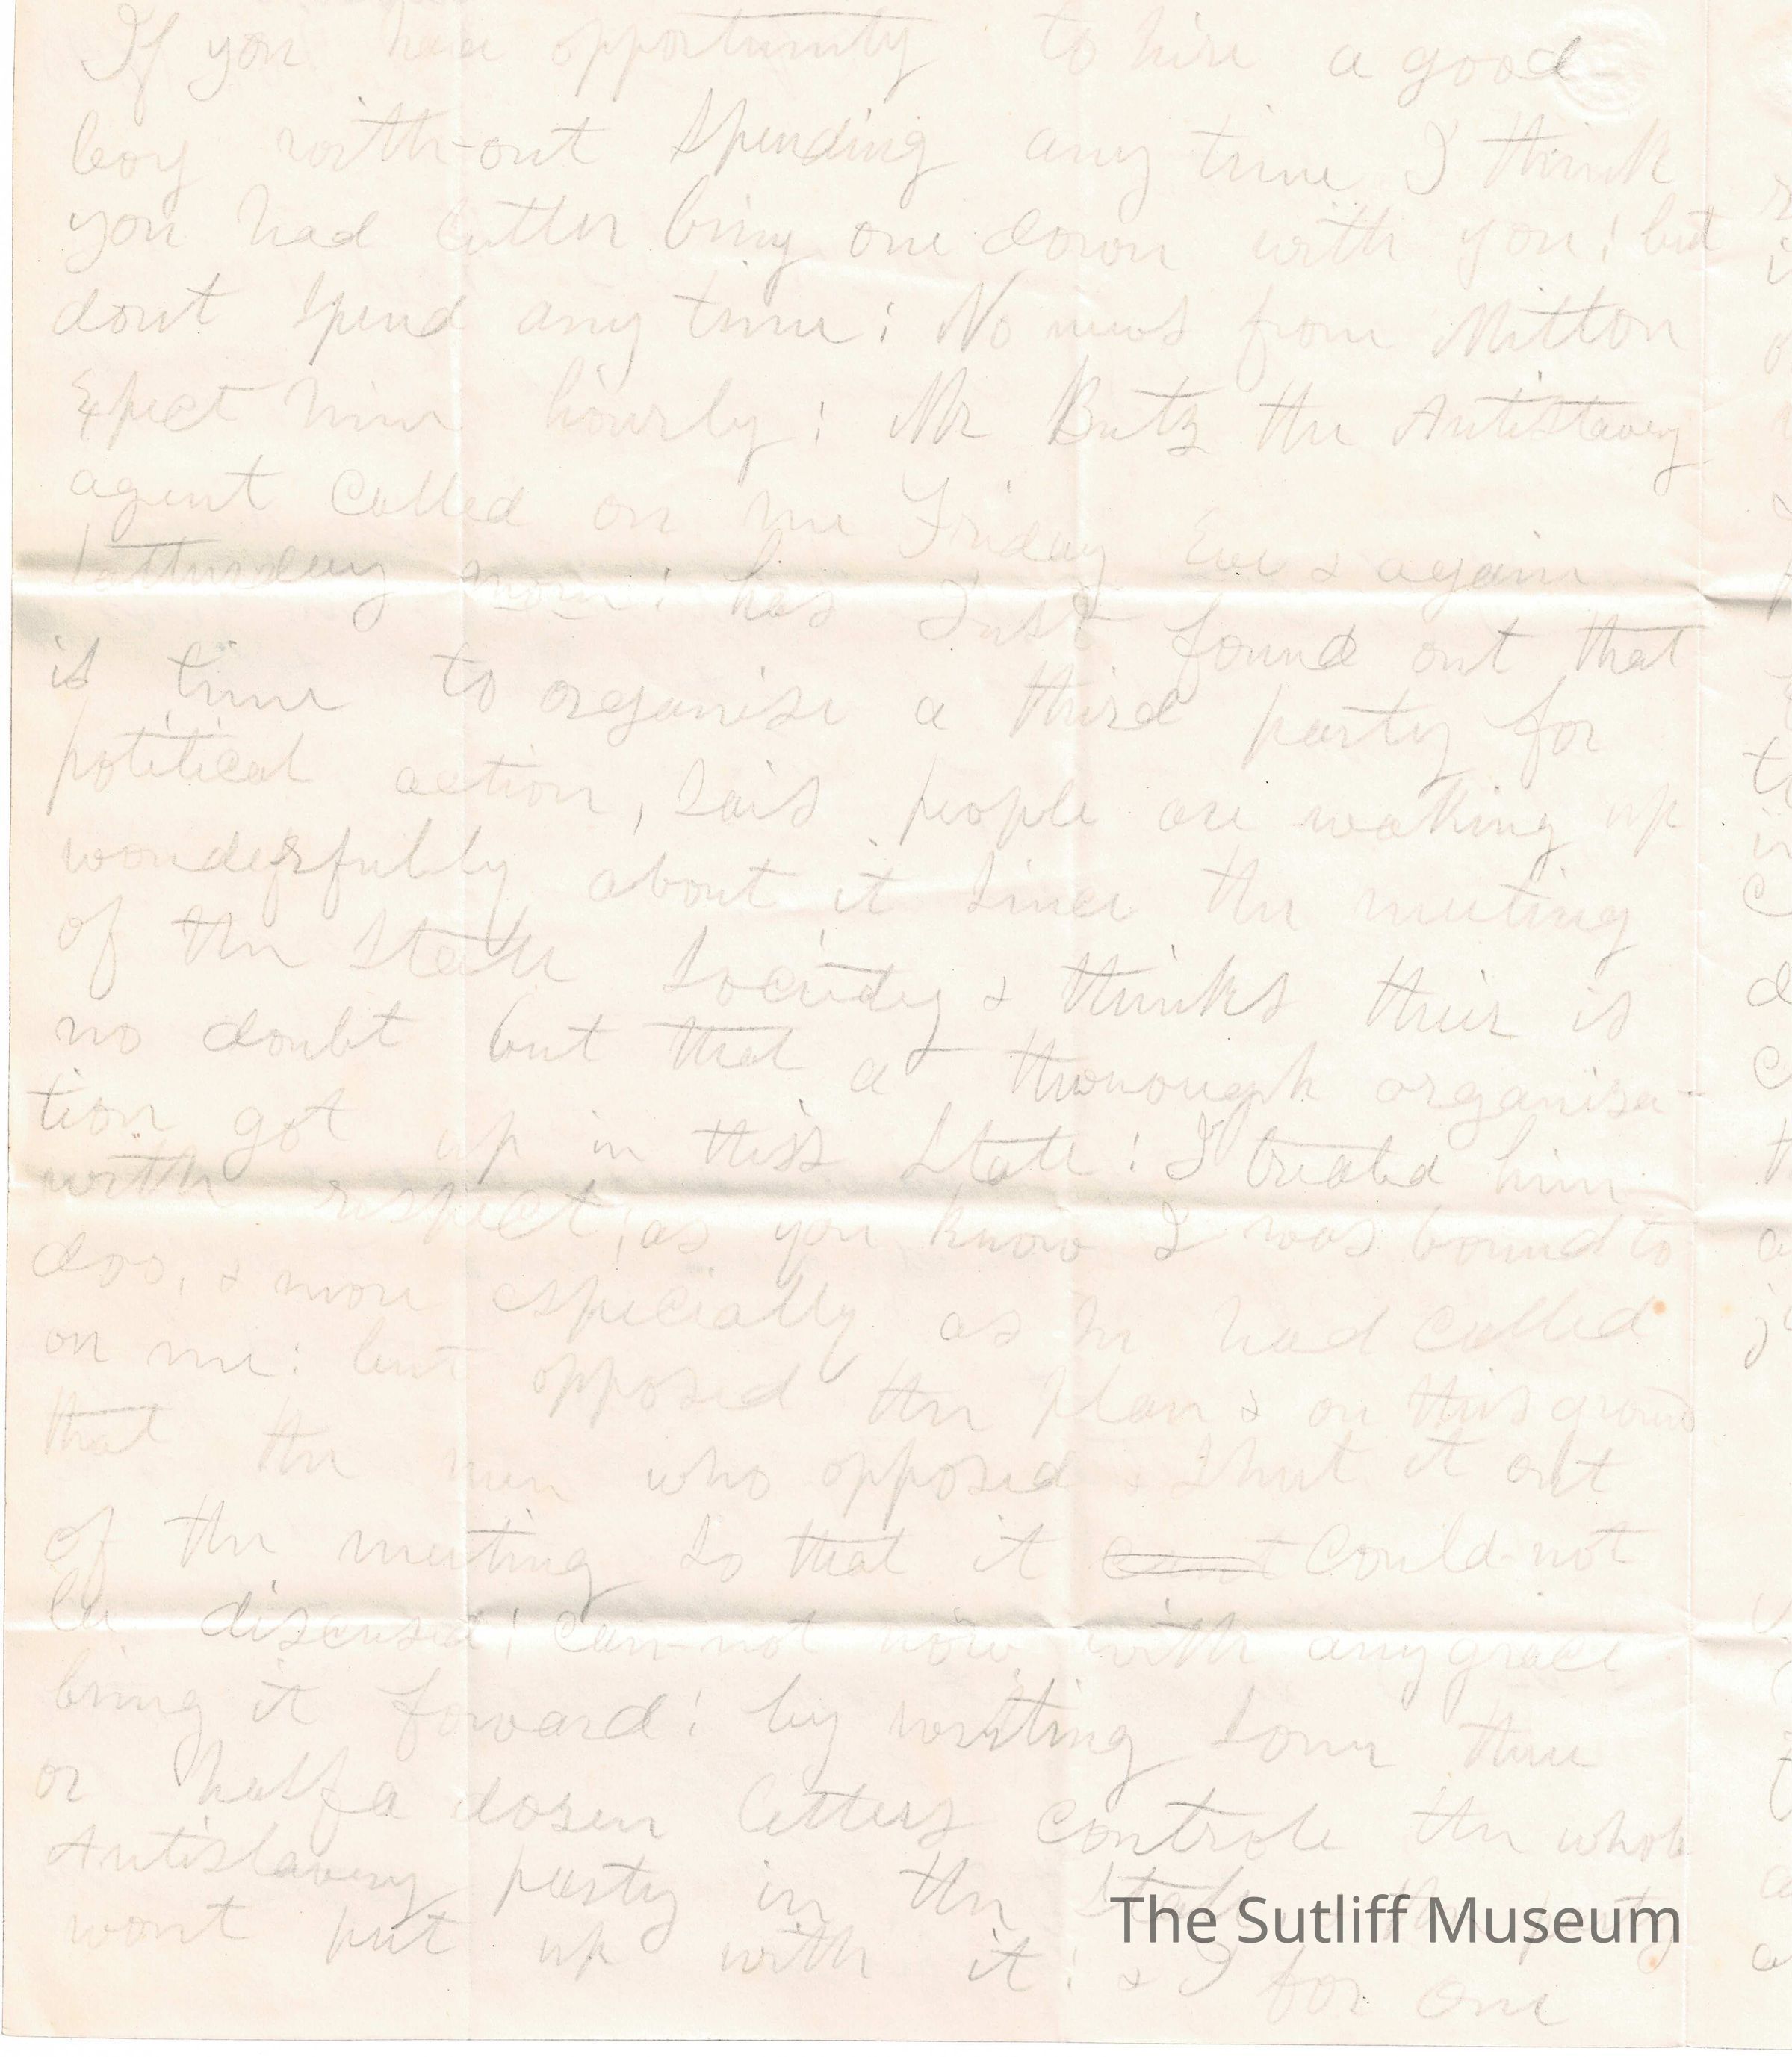 If you have opportunity to hire a good
boy with-out spending any time I think
you had better bring one down with you; but
dont spend any time; No news from Milton
Expect him hourly; Mr Butz the Antislavery
agent called on me Friday Eve & again
Satturdeay morn; has Just found out that
is time to organise a third party for
political action, sais people are waking up
wonderfully about it since the meeting
of the State Society & thinks their is
no doubt but that a thorough organisa-
tion got up in this State; I treated him
with respect, as you know I was bound to
doo, & more especially as he had called
on me: but opposed the plan & on this ground
that the men who opposed & Shut it out
of the meeting so that it could-not
be discused; can-not now with any grace
bring it forward; by writing some three
or half a dosen letters controle the whole
Antislavery party in the State the party
wont put up with it; & I for one
The Sutliff Museum